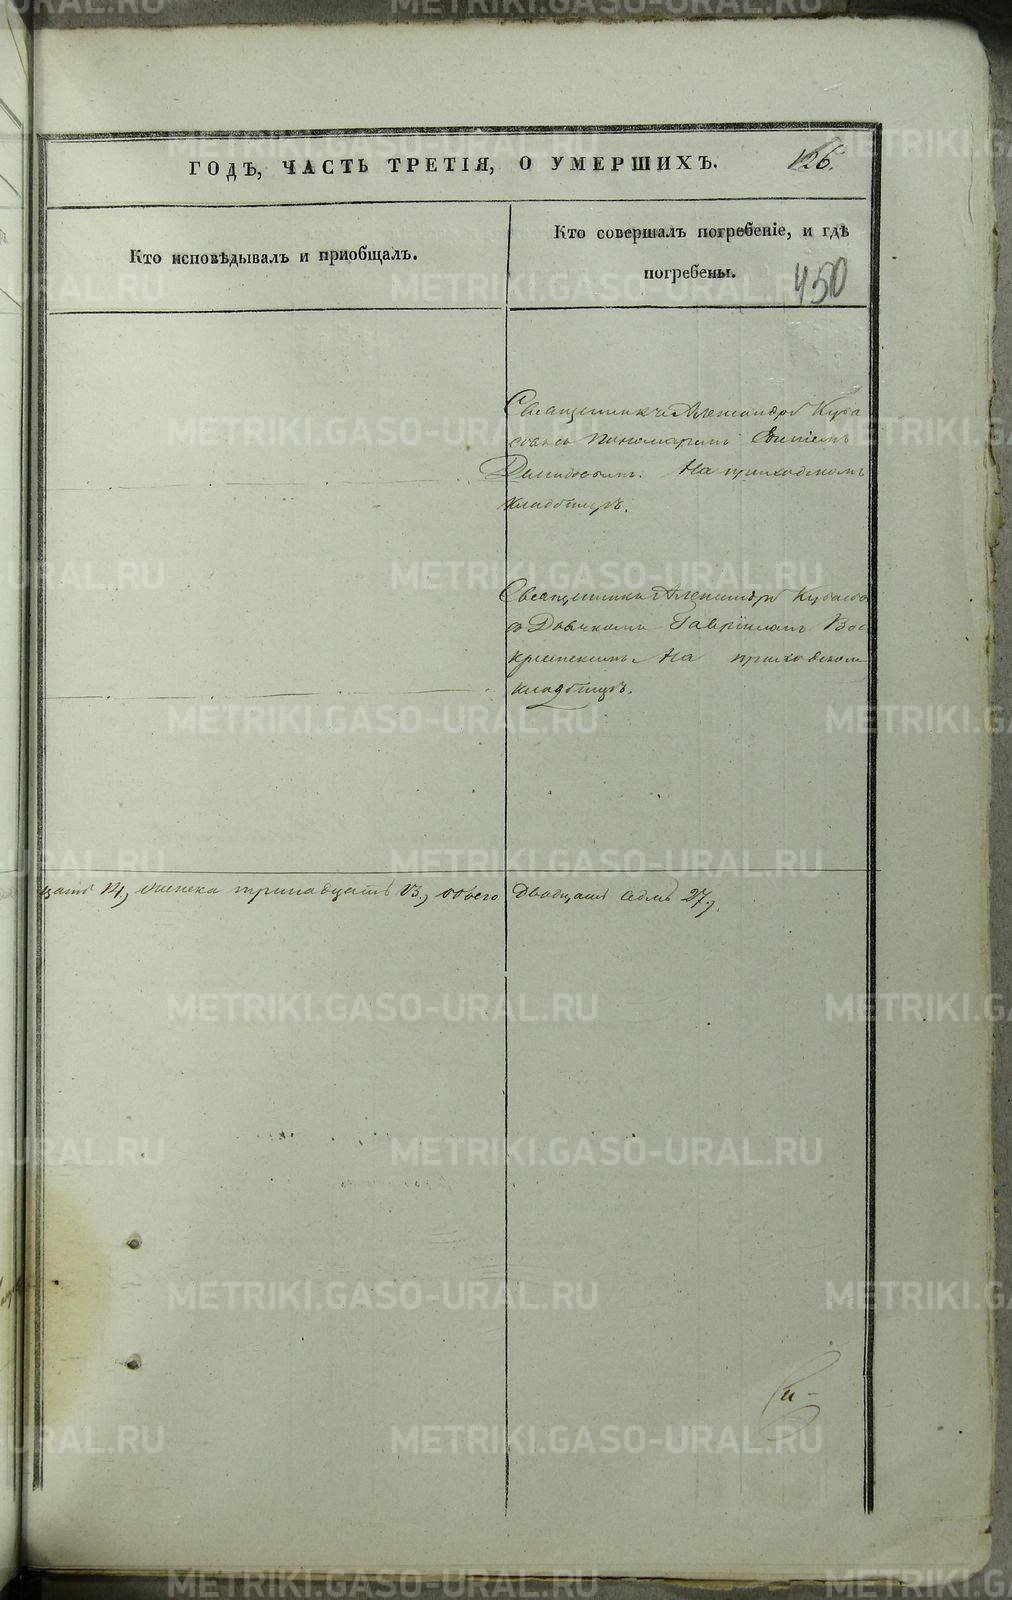 ГОДѢ, ЧАСТЬ ТРЕТІЯ, О УМЕРШИХЪ. 126.
Кто исповѣдывалъ и приобщалъ.
Кто совершалъ погребеніе, и гдѣ
погребены.
450
Священникъ Александръ Куба
съ Пономаремъ
На приходскомъ
кладбищѣ.
Священникъ Александръ
съ Дьячкомъ Гавріиломъ Вос
кресенскимъ На приходскомъ
кладбищѣ.
цать 14, женска тринадцать 13, обоего Двадцать седмь 27.
METRIKI.GASO-URAL.RU